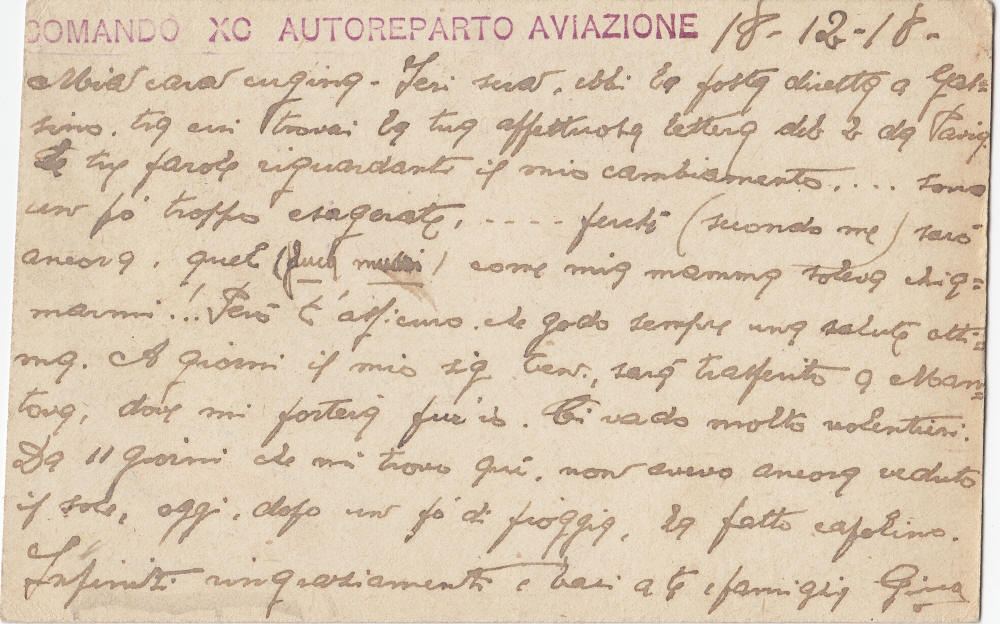 COMANDO XC AUTOREPARTO AVIAZIONE 18-12-18-
Mia cara cugina - Ieri sera, ebbi la posta diretta a Gas=
sino, tra cui trovai la tua affettuosa lettera del 2 da Pavia.
Le tue parole riguardante il mio cambiamento.... sono
un pò troppo esagerate, ---- perchè (secondo me) sarò
ancora, quel ( ) come mia mamma soleva chia=
marmi!!. Però t'assicuro, che godo sempre una salute otti=
ma. A giorni il mio sig. ten., sarà trasferito a Man=
tova, dove mi porterà pur'io. Ci vado molto volentieri.
Da 11 giorni che mi trovo qui, non avevo ancora veduto
il sole, oggi, dopo un pò di pioggia, ha fatto capolino.
Infiniti ringraziamenti e baci a te e famiglia